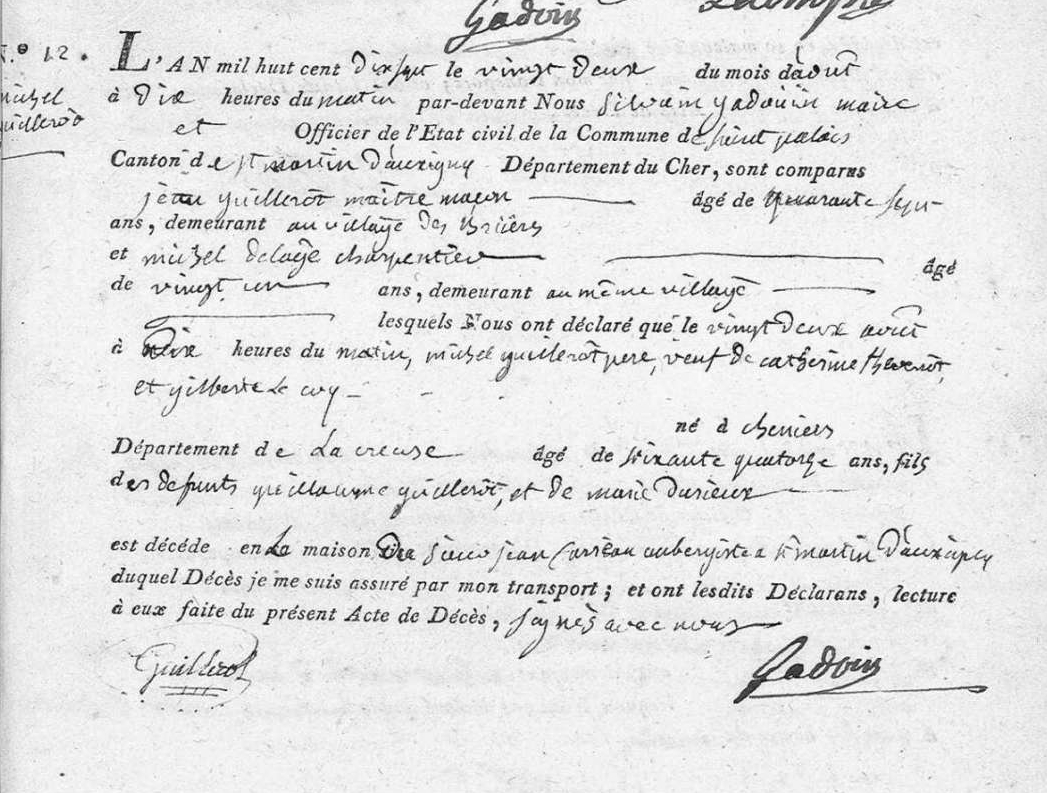 Gadoin
N.º 12.
michel
guillerot
L'AN mil huit cent dix sept le vingt deux du mois d'août
à dix heures du matin par-devant Nous Silvain gadouin maire
et Officier de l'Etat civil de la Commune de saint palais
Canton de st martin d'auxigny Département du Cher, sont comparus
jean guillerot maitre maçon âgé de quarante sept
ans, demeurant au village des Bruières
et michel delage charpentier âgé
de vingt un ans, demeurant au même village
lesquels Nous ont déclaré que le vingt deux août
à dix heures du matin, michel guillerot pere, veuf de catherine thevenot,
et gilberte Le coq
né à cheniers
Département de La creuse âgé de soixante quatorze ans, fils
des defunts guillaume guillerot, et de marie Durieux
est décédé en La maison du sieur jean aubergiste a st martin d'auxigny
duquel Décès je me suis assuré par mon transport ; et ont lesdits Déclarans, lecture
à eux faite du présent Acte de Décès, signés avec nous
Guillerot Gadoin